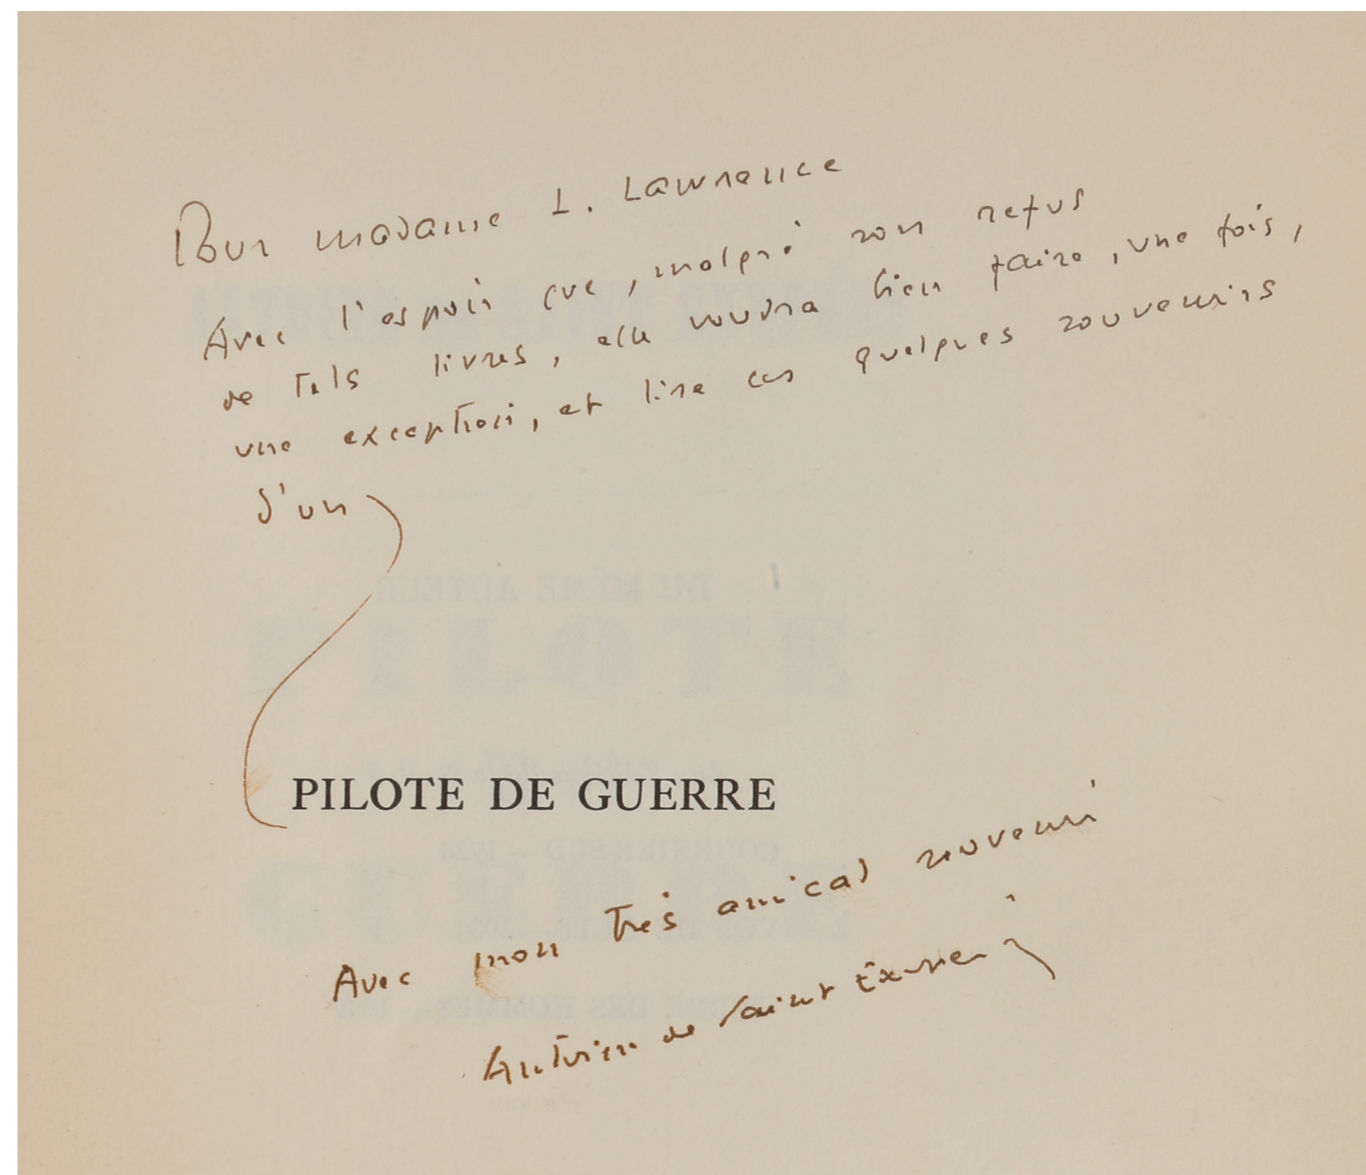 Pour madame L. Lawrence
Avec l'espoir que, malgré son refus
de tels livres, elle voudra bien faire, une fois,
une exception, et lire ces quelques souvenirs
d'un
PILOTE DE GUERRE
Avec mon très amical souvenir
Antoine de Saint Exupéry